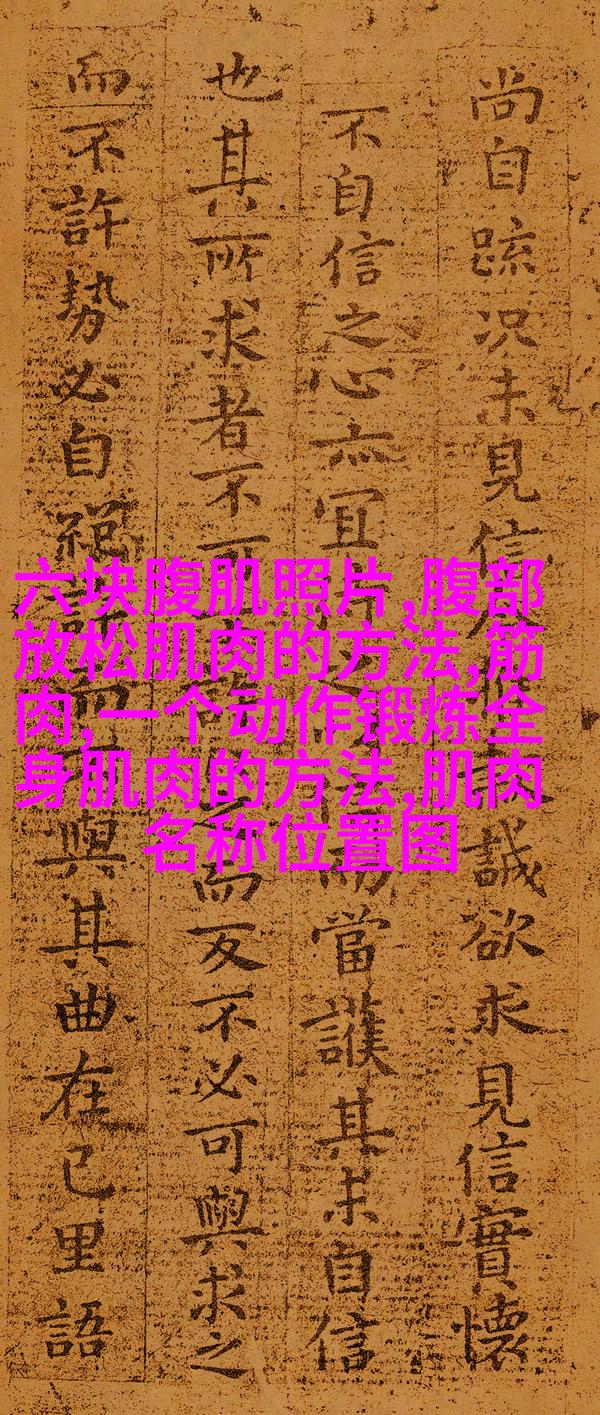 尚自踈況未見信誠欲求見信實懷
不自信之心亦宜而當護其未自信
也其所求者不可而反不必可與求之
而不許勢必自絕與其曲在己里語
六块腹肌照片,腹部
放松肌肉的方法,筋
肉,一个动作锻炼全
身肌肉的方法,肌肉
名称位置图